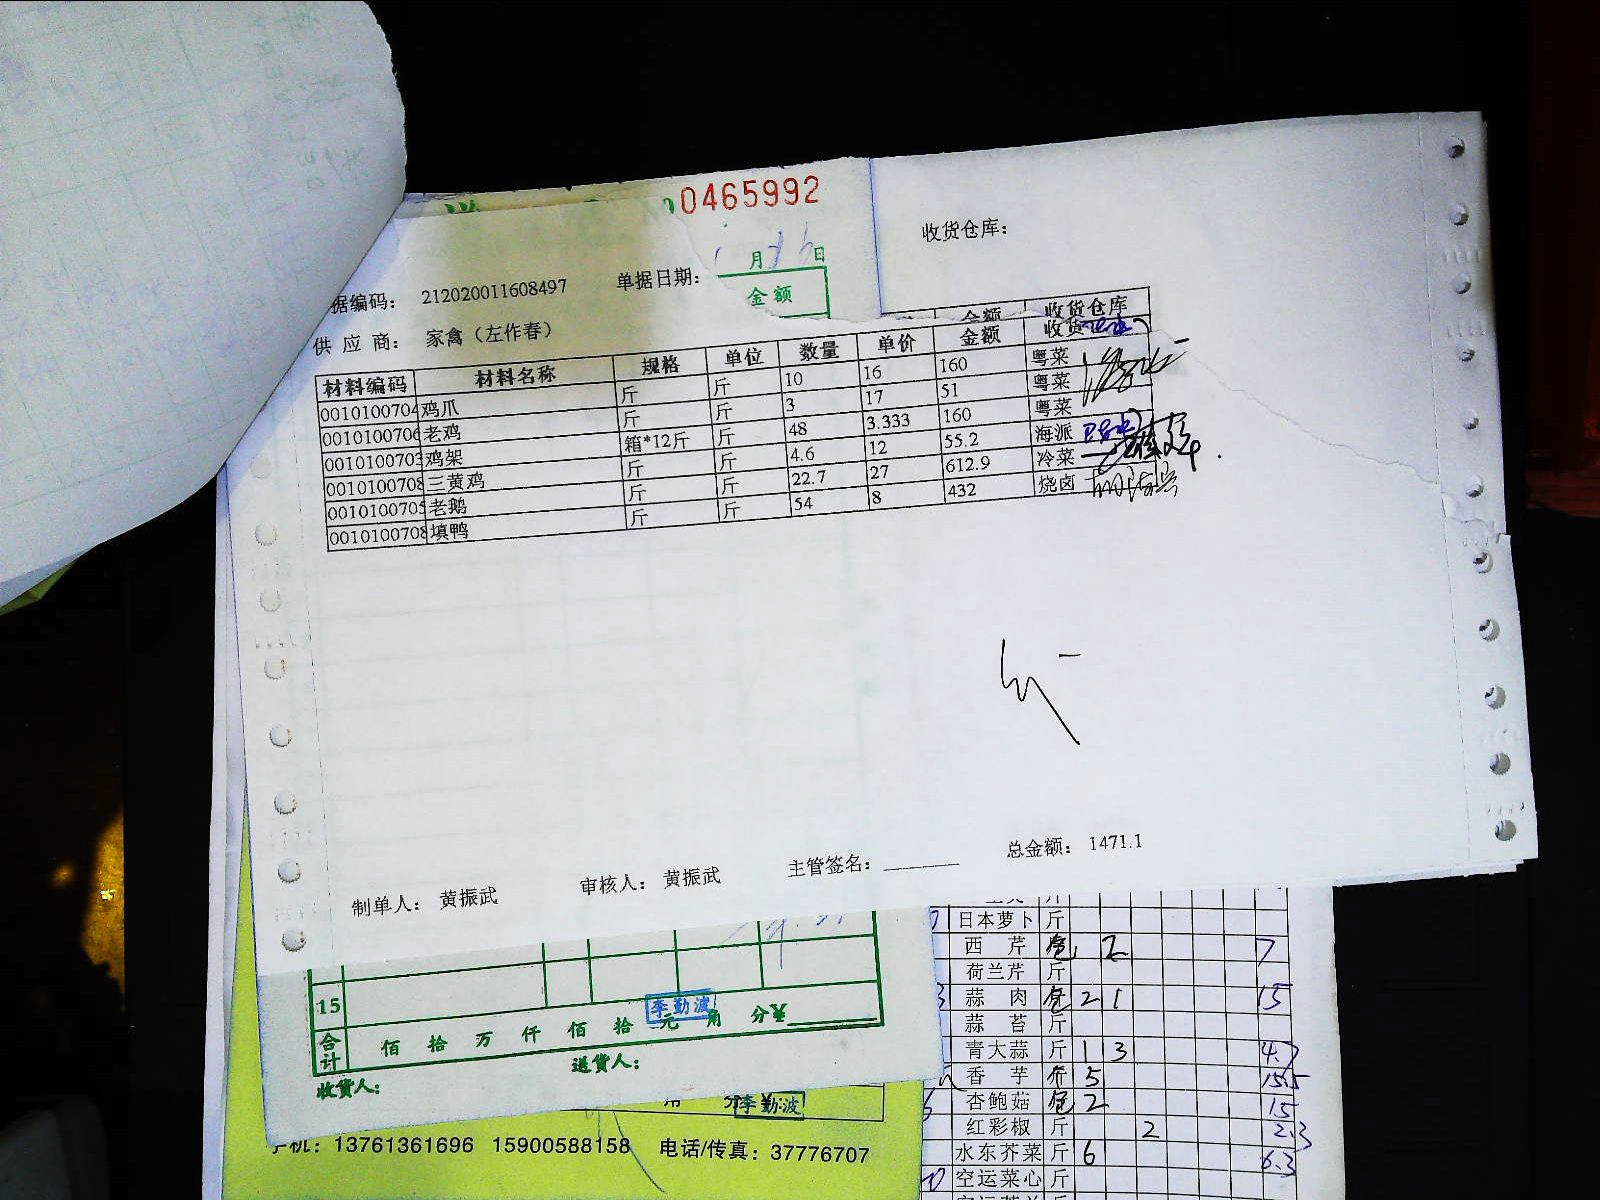 0465992
月 日
金额
收货仓库：
据编码： 212020011608497 单据日期：
供应商： 家禽（左作春）
金额 收货仓库
材料编码 材料名称 规格 单位 数量 单价 金额 收货
0010100704 鸡爪 斤 斤 10 16 160 粤菜
0010100706 老鸡 斤 斤 3 17 51 粤菜
0010100703 鸡架 箱*12斤 斤 48 3.333 160 粤菜
0010100708 三黄鸡 斤 斤 4.6 12 55.2 海派
0010100705 老鹅 斤 斤 22.7 27 612.9 冷菜
0010100708 填鸭 斤 斤 54 8 432 烧卤
制单人： 黄振武 审核人： 黄振武 主管签名： 总金额： 1471.1
15
合计 佰 拾 万 仟 佰 拾 元 角 分¥
李勤波
收货人： 送货人：
李勤波
手机：13761361696 15900588158 电话/传真：37776707
日本萝卜 斤
西芹 2 7
荷兰芹 斤
蒜肉 2 1 15
蒜苔 斤
青大蒜 斤 1 3 4.7
香芋 5 15.5
杏鲍菇 2 15
红彩椒 斤 2 2.3
水东芥菜 斤 6 6.3
空运菜心 斤